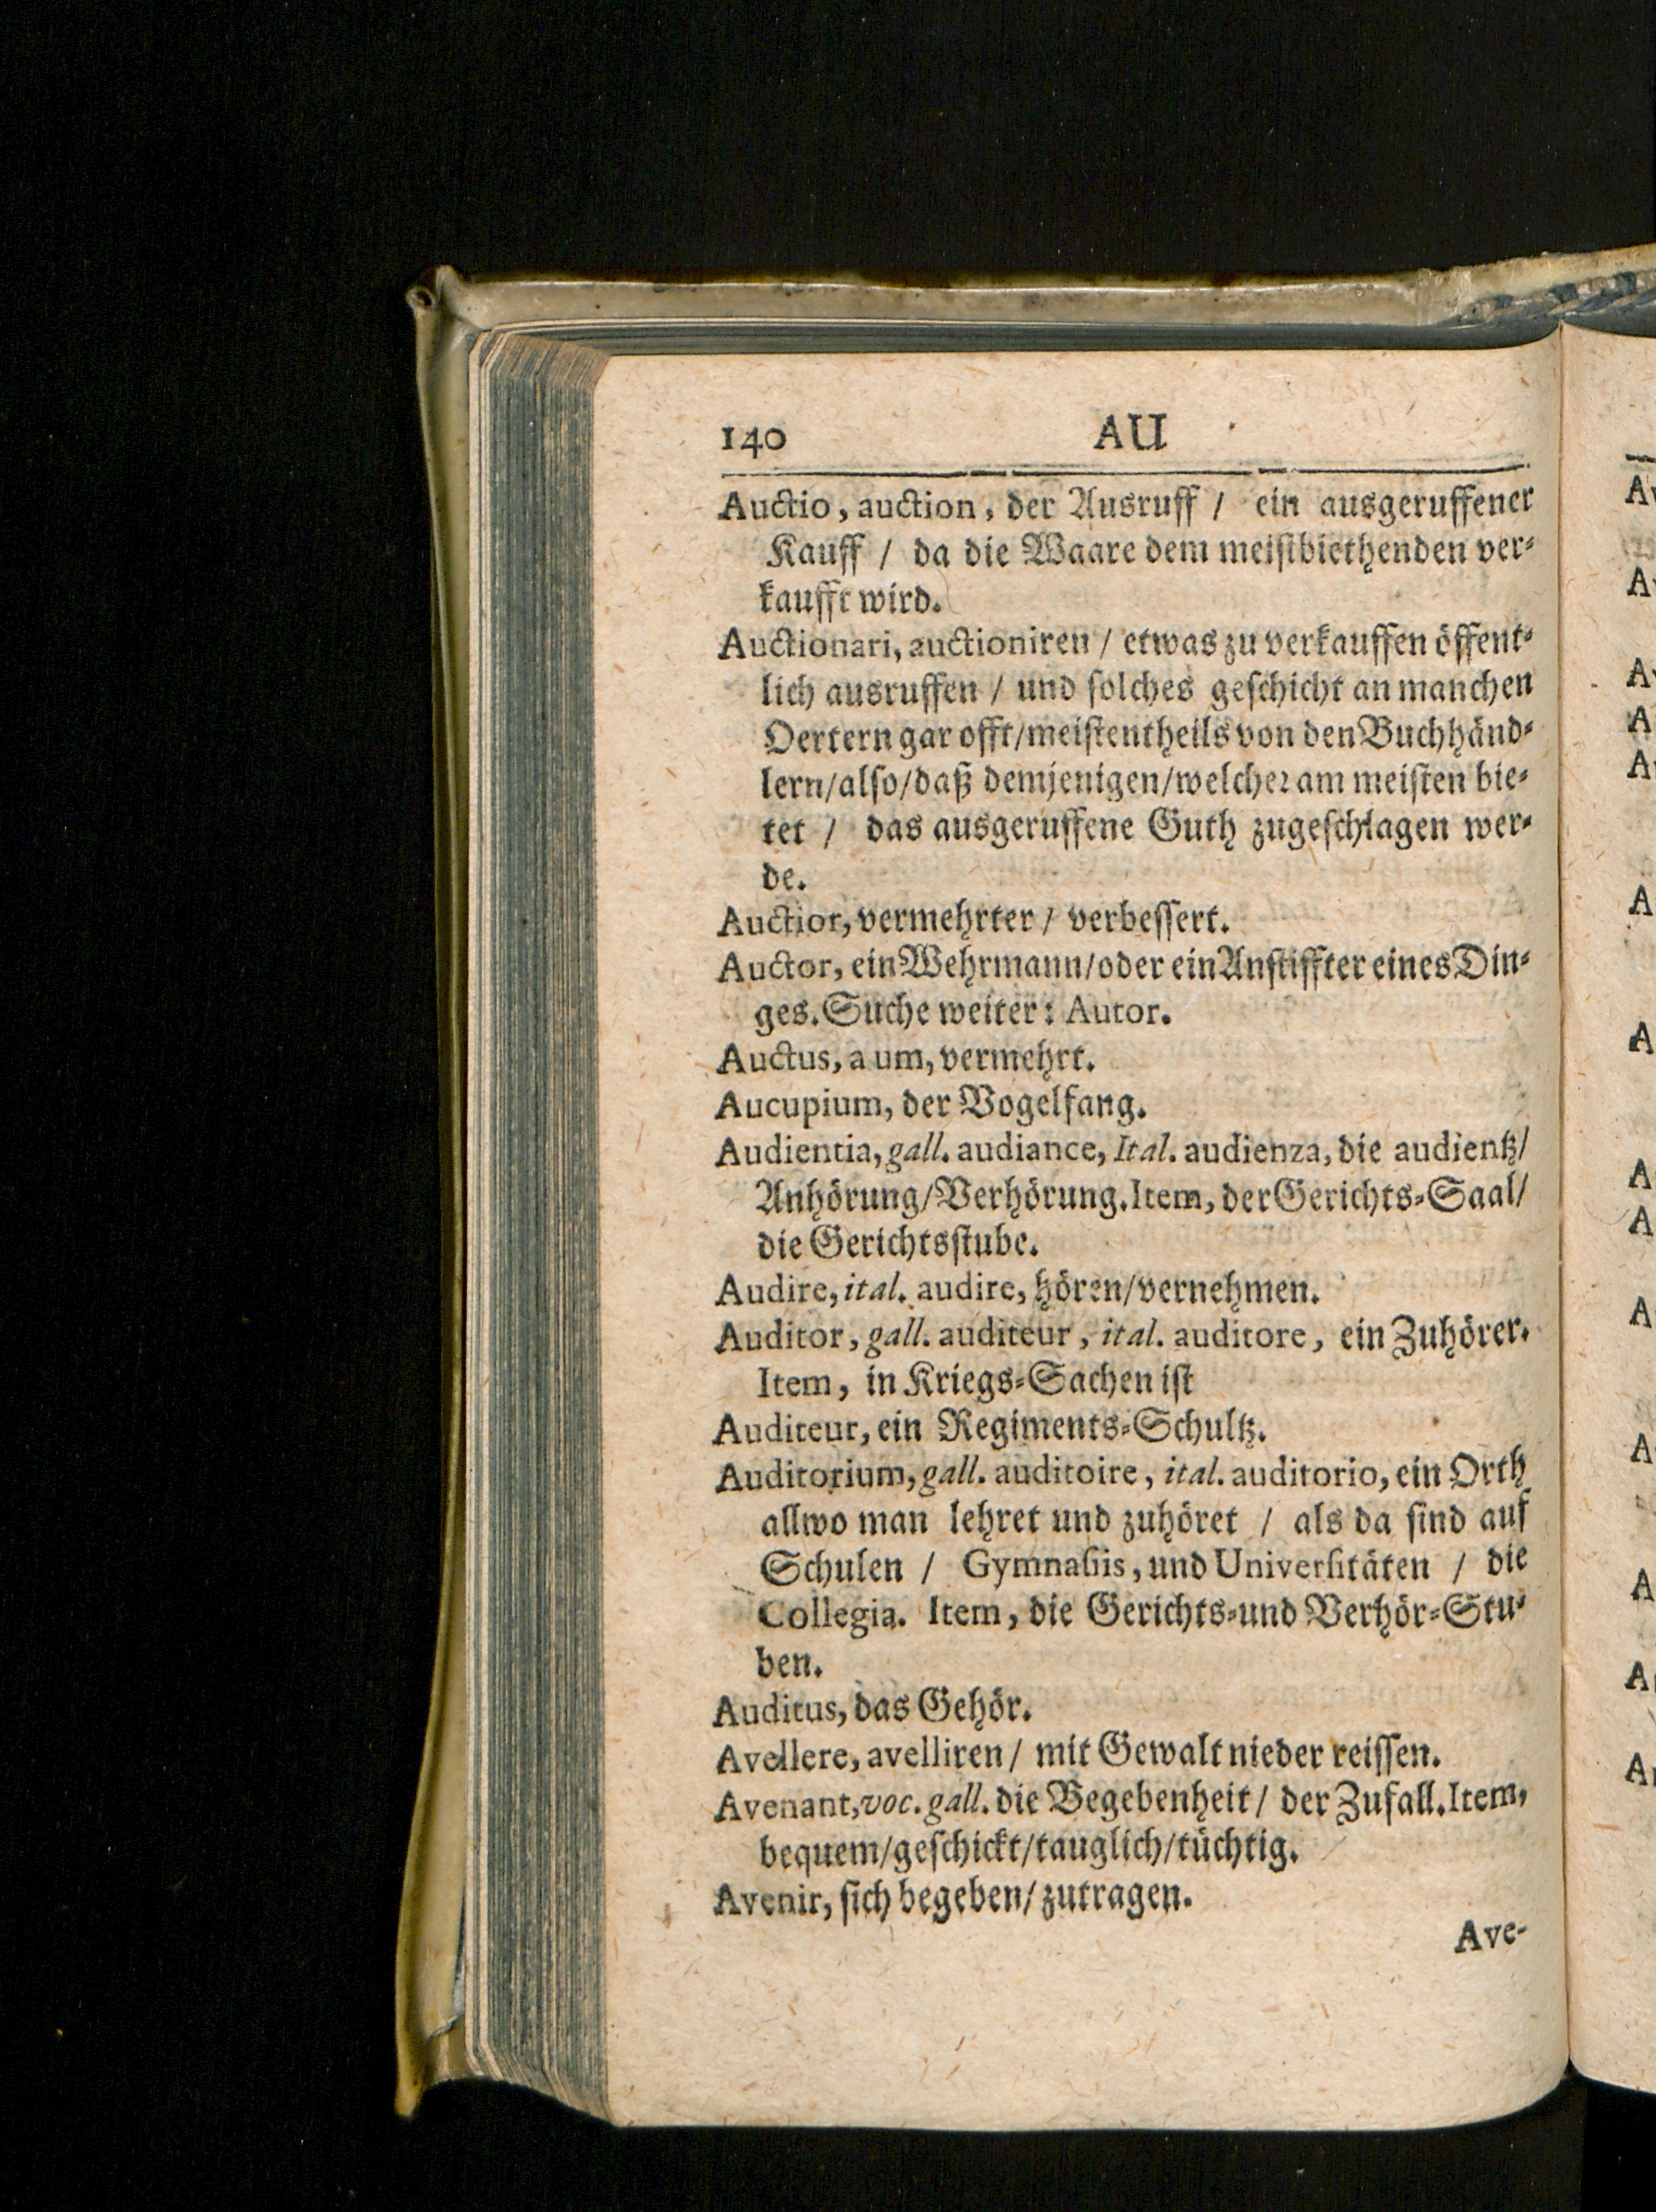 140 AU
Auctio, auction, der Ausruff / ein ausgeruffener
Kauff / da die Waare dem meistbiethenden ver-
kaufft wird.
Auctionari, auctioniren / etwas zu verkauffen öffent-
lich ausruffen / und solches geschicht an manchen
Oertern gar offt/meistentheils von den Buchhänd-
lern/also/daß demjenigen/welcher am meisten bie-
tet / das ausgeruffene Guth zugeschlagen wer-
de.
Auctior, vermehrter / verbessert.
Auctor, ein Wehrmann/oder ein Anstiffter eines Din-
ges. Suche weiter: Autor.
Auctus, a um, vermehrt.
Aucupium, der Vogelfang.
Audientia, gall. audiance, Ital. audienza, die audientz/
Anhörung/Verhörung. Item, der Gerichts-Saal/
die Gerichtsstube.
Audire, ital. audire, hören/vernehmen.
Auditor, gall. auditeur, ital. auditore, ein Zuhörer.
Item, in Kriegs-Sachen ist
Auditeur, ein Regiments-Schultz.
Auditorium, gall. auditoire, ital. auditorio, ein Orth
allwo man lehret und zuhöret / als da sind auf
Schulen / Gymnasiis, und Universitäten / die
Collegia. Item, die Gerichts-und Verhör-Stu-
ben.
Auditus, das Gehör.
Avellere, avelliren / mit Gewalt nieder reissen.
Avenant, voc. gall. die Begebenheit / der Zufall. Item,
bequem/geschickt/tauglich/tüchtig.
Avenir, sich begeben/zutragen.
Ave-